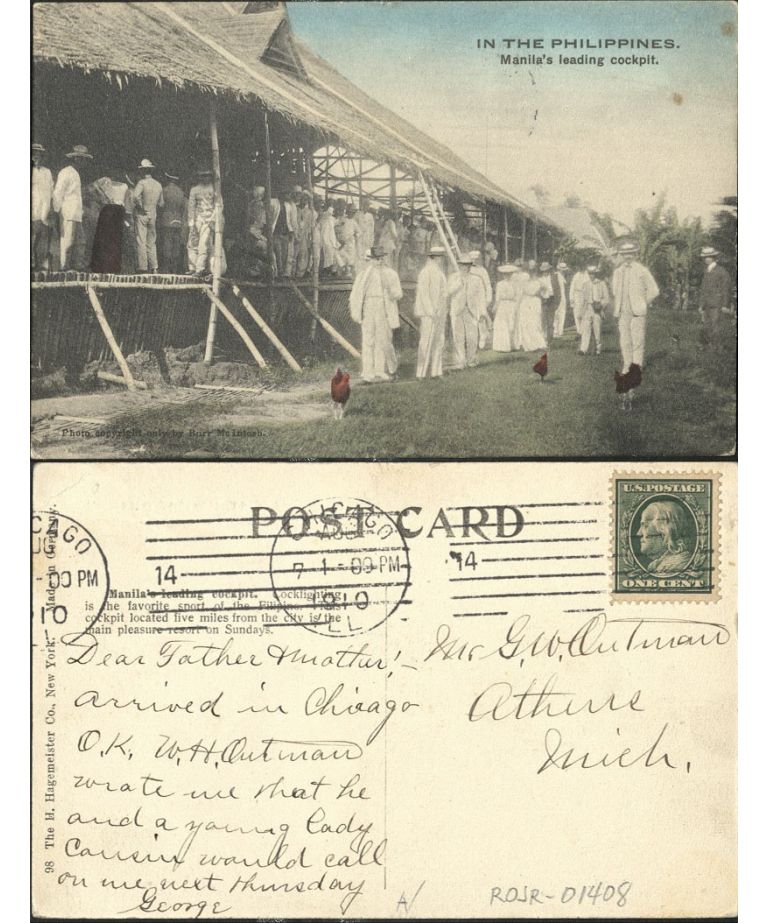 IN THE PHILIPPINES.
Manila's leading cockpit.
Photo copyright only by Burr McIntosh.
POST CARD
CHICAGO
AUG
7 1-00 PM
1910
ILL
14
14
CAGO
UG
-00 PM
10
U.S. POSTAGE
ONE CENT
Made in Germany.
98 The H. Hagemeister Co., New York.
Manila's leading cockpit. Cockfighting
is the favorite sport of the Filipino. This
cockpit located five miles from the city is the
main pleasure resort on Sundays.
Dear Father & Mother! –
arrived in Chicago
O.K. W.H. Outman
wrote me that he
and a young lady
Cousin would call
on me next thursday
George
Mr G. W. Outman
Athens
Mich.
A/
ROJR-01408